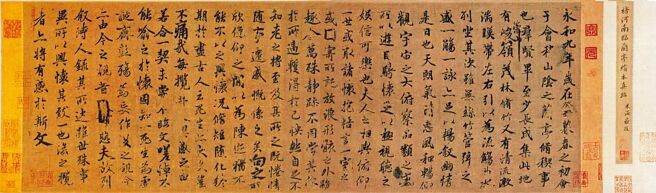 褚河南臨蘭亭絹本真跡
永和九年歲在癸丑暮春之初會
于會稽山陰之蘭亭脩稧事
也羣賢畢至少長咸集此地
有峻領茂林脩竹又有清流激
湍暎帶左右引以為流觴曲水
列坐其次雖無絲竹管弦之
盛一觴一詠亦足以暢叙幽情
是日也天朗氣清惠風和暢仰
觀宇宙之大俯察品類之盛
所以遊目騁懷足以極視聽之
娛信可樂也夫人之相與俯仰
一世或取諸懷抱悟言一室之內
或因寄所託放浪形骸之外雖
趣舍萬殊靜躁不同當其欣
於所遇蹔得於己怏然自足不
知老之將至及其所之既惓情
隨事遷感慨係之矣向之所
欣俛仰之閒以為陳迹猶不
能不以之興懷況脩短隨化終
期於盡古人云死生亦大矣豈
不痛哉每攬昔人興感之由
若合一契未嘗不臨文嗟悼不
能喻之於懷固知一死生為虛
誕齊彭殤為妄作後之視今
亦由今之視昔悲夫故列
叙時人錄其所述雖世殊事
異所以興懷其致一也後之攬
者亦將有感於斯文